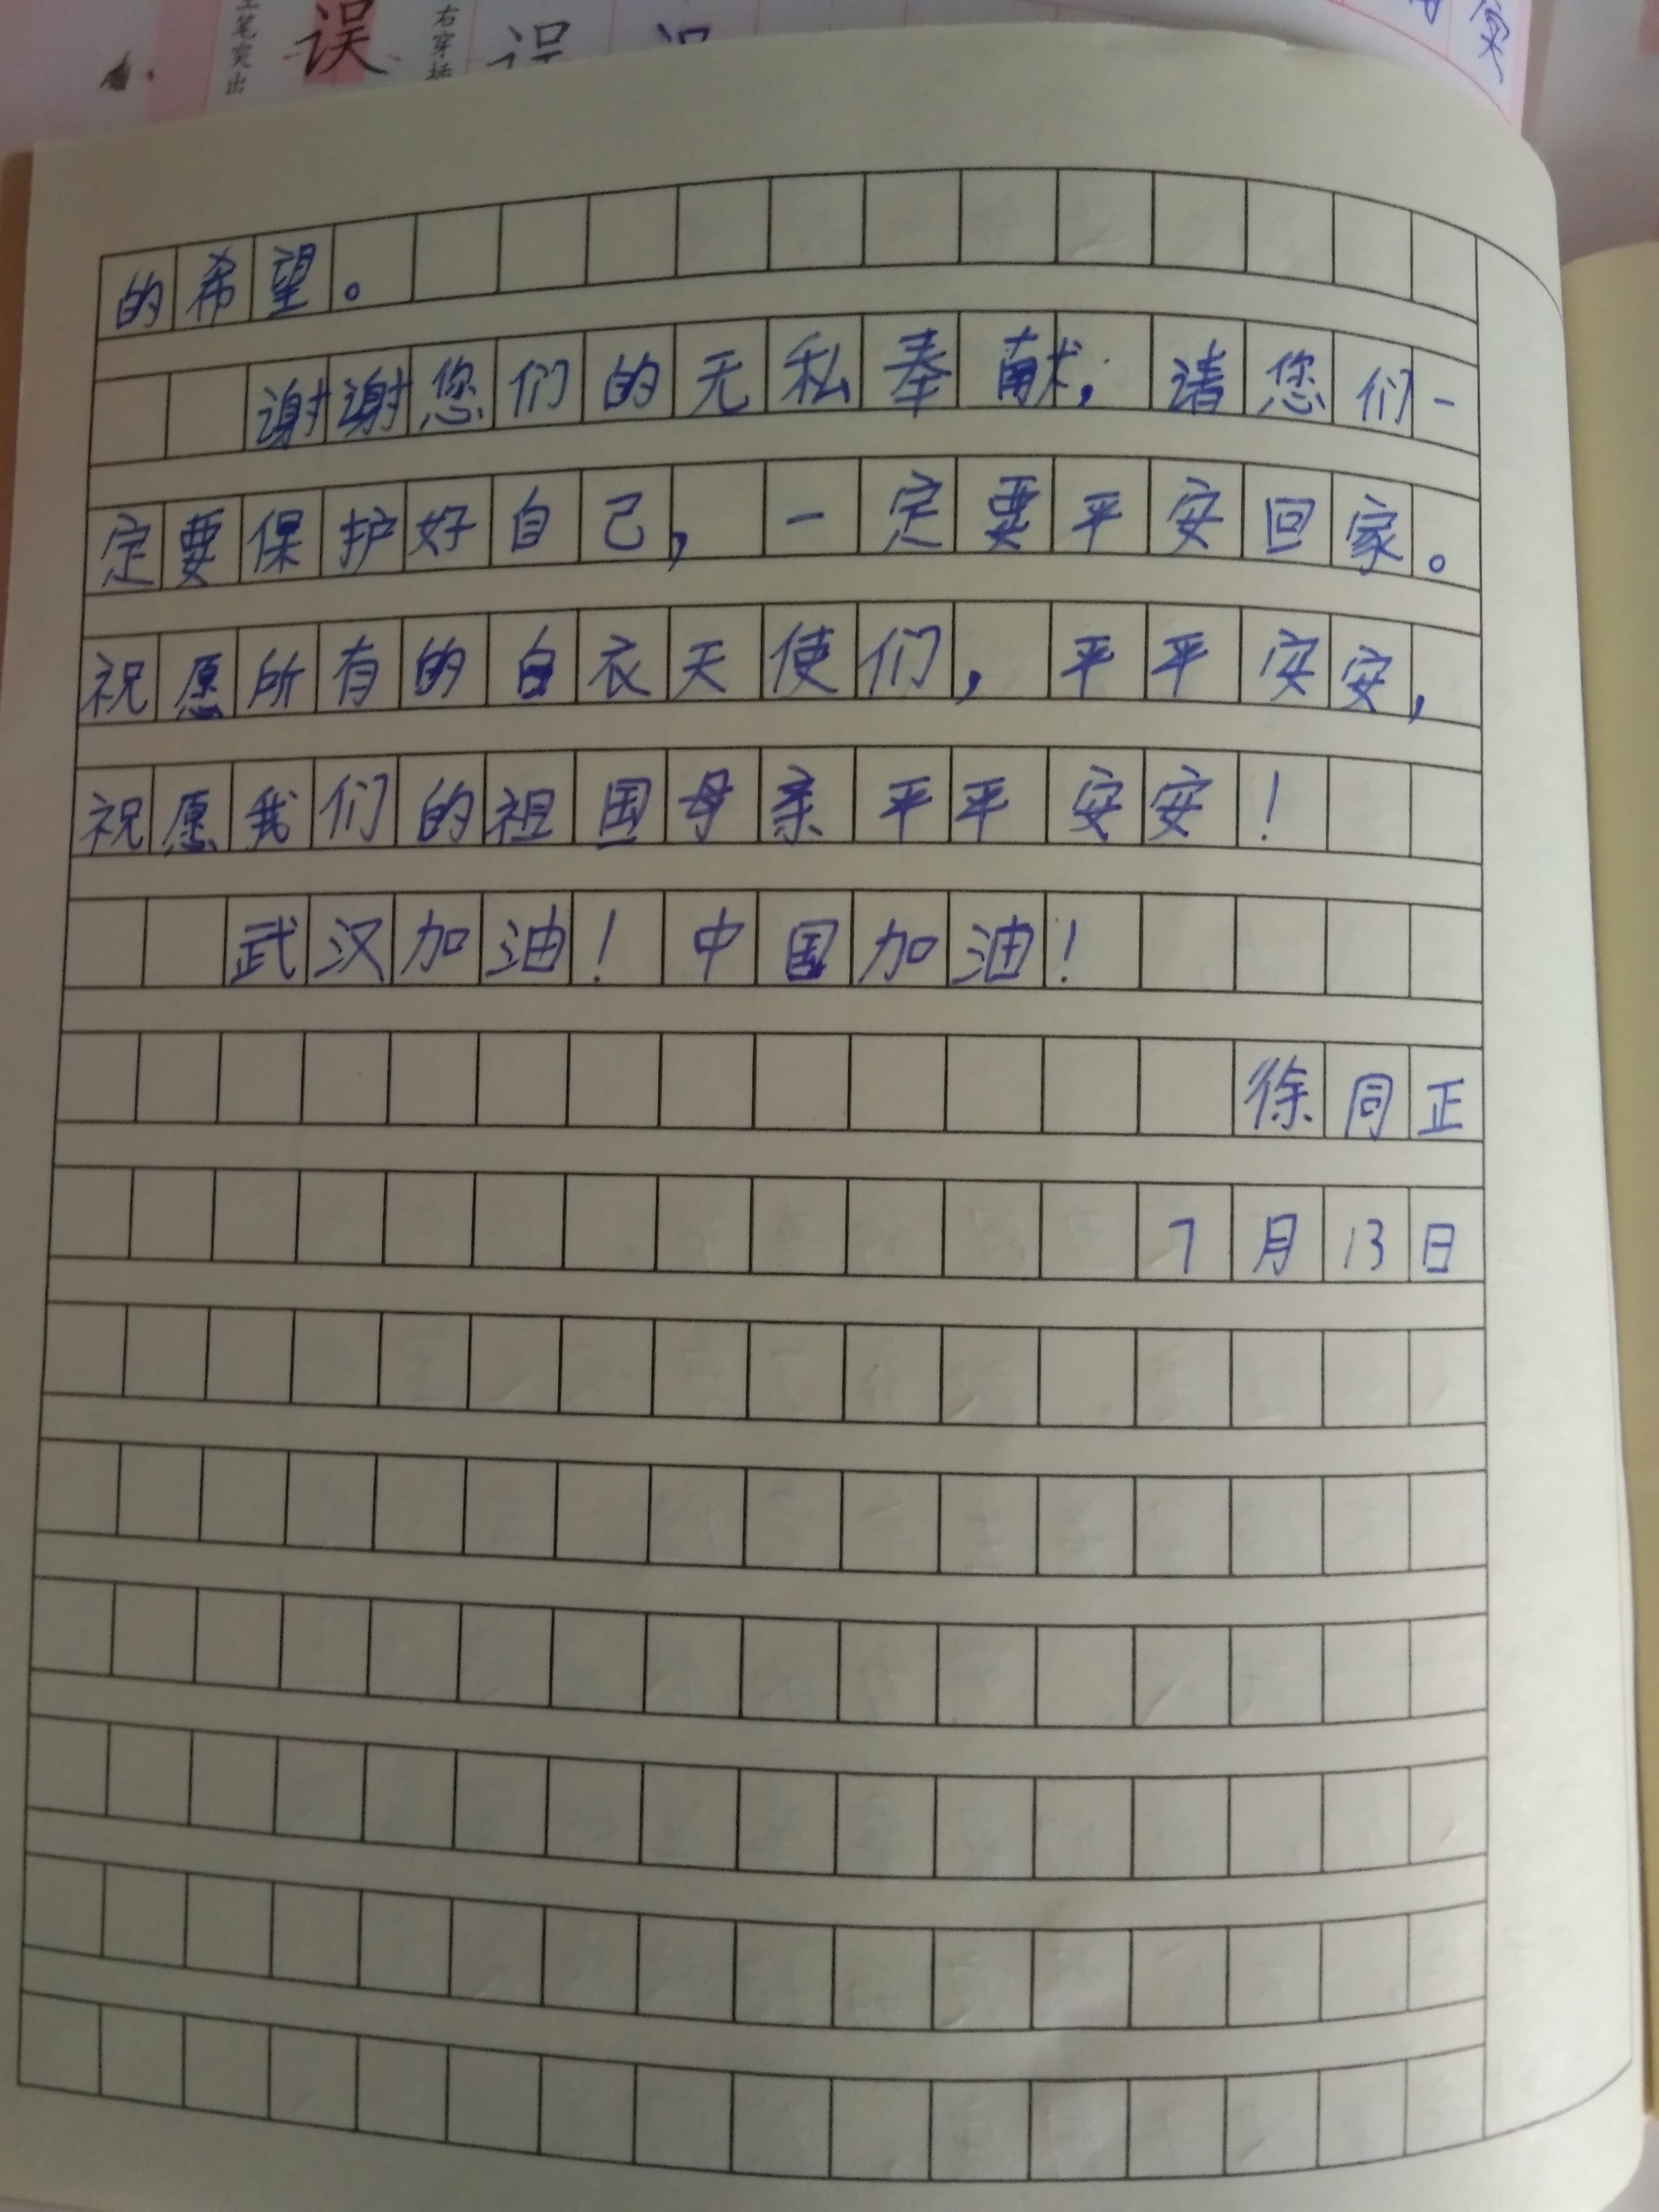 误
的希望。
谢谢您们的无私奉献，请您们一
定要保护好自己，一定要平安回家。
祝愿所有的白衣天使们，平平安安，
祝愿我们的祖国母亲平平安安！
武汉加油！中国加油！
徐同正
7月13日